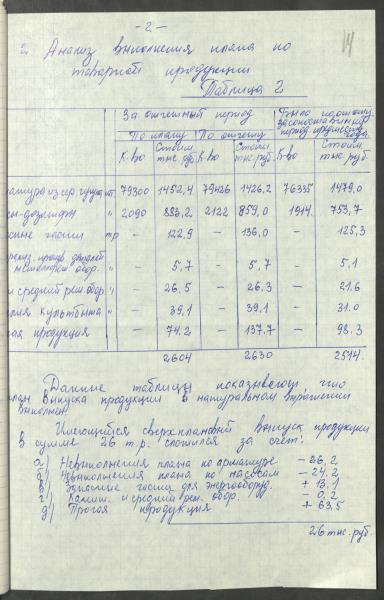 - 2 -
14
2. Анализ выполнения плана по
товарной продукции
Таблица 2
За отчетный период
Было по отчету
за соответствующий
период предыдущего
года
По плану По отчету
К-во Стоим. тыс. руб. К-во Стоим. тыс. руб. К-во Стоим. тыс. руб.
шт. 79300 1452,4 79426 1426,2 76335 1479,0
" 2090 883,2 2122 859,0 1914 753,7
тр — 122,9 — 136,0 — 125,3
" — 5,7 — 5,7 — 5,1
и средний рем. обор. " — 26,5 — 26,3 — 21,6
культбыта " — 39,1 — 39,1 — 31.0
продукция — 74,2 — 137,7 — 98,3
2604 2630 2514.
Данные таблицы показывают, что
план выпуска продукции в натуральном выражении
выполнен.
Имеющийся сверхплановый выпуск продукции
в сумме 26 т.р. сложился за счет:
а) Невыполнения плана по арматуре – 26,2
б) Невыполнения плана по насосам – 24,2
в) Запасные части для энергооборуд. + 13,1
г) Капит. и средний рем. обор. – 0,2
д) Прочая продукция + 63,5
26 тыс. руб.